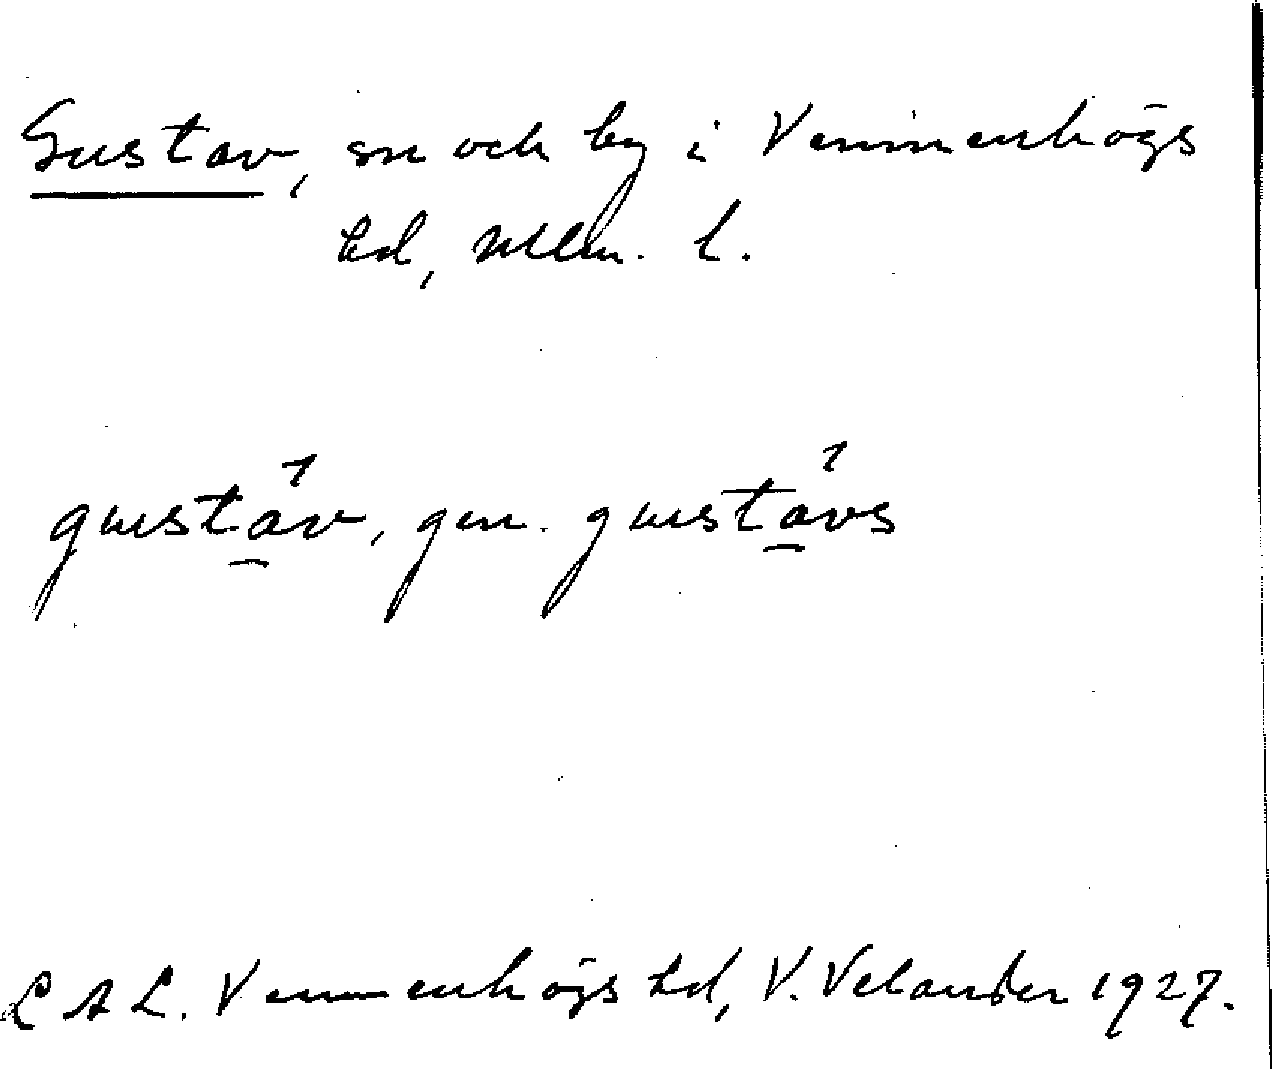 Gustav, sn och by i Vemmenhögs
hd, Mlm. l.
gustáv, gen. gustávs
LAL. Vemmenhögs hd, V. Velander 1927.